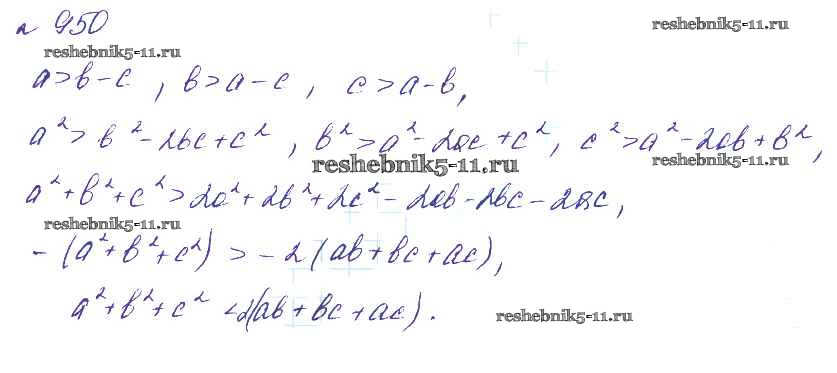 № 950
reshebnik5-11.ru
reshebnik5-11.ru
a > b - c , b > a - c , c > a - b,
a² > b² - 2bc + c² , b² > a² - 2ac + c² , c² > a² - 2ab + b² ,
reshebnik5-11.ru
reshebnik5-11.ru
a² + b² + c² > 2a² + 2b² + 2c² - 2ab - 2bc - 2ac,
reshebnik5-11.ru
- (a² + b² + c²) > - 2 (ab + bc + ac),
a² + b² + c² < 2(ab + bc + ac) .
reshebnik5-11.ru